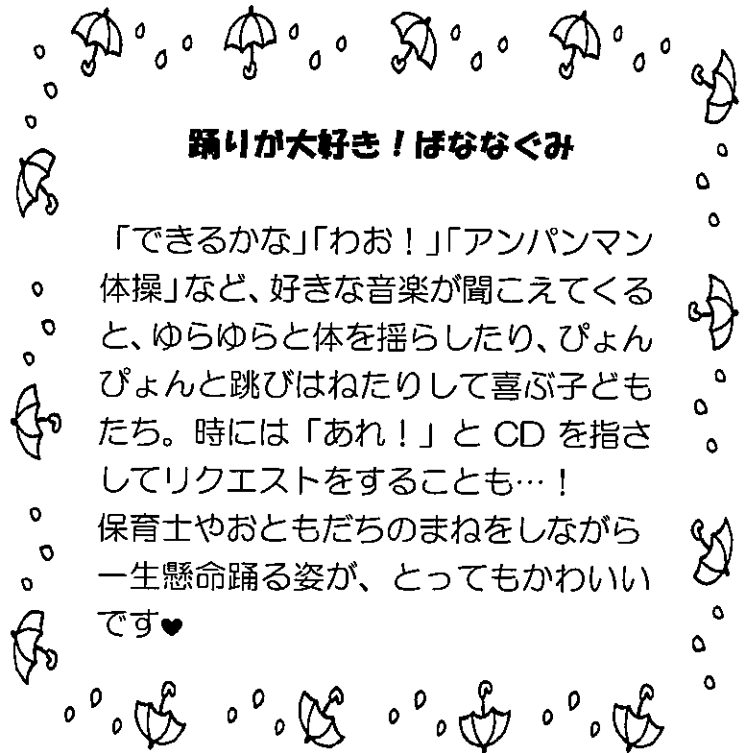 踊りが大好き！ばななぐみ
「できるかな」「わお！」「アンパンマン
体操」など、好きな音楽が聞こえてくる
と、ゆらゆらと体を揺らしたり、ぴょん
ぴょんと跳びはねたりして喜ぶ子ども
たち。時には「あれ！」と CD を指さ
してリクエストをすることも…！
保育士やおともだちのまねをしながら
一生懸命踊る姿が、とってもかわいい
です♥